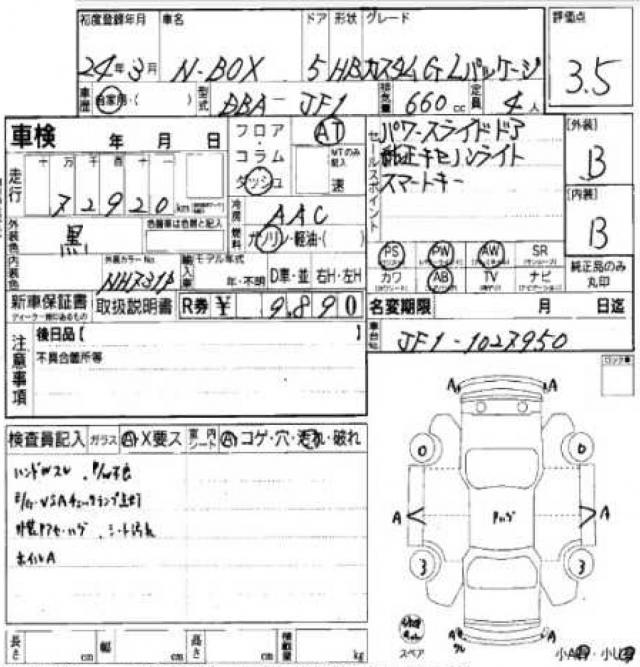 初度登録年月 車名 ドア 形状 グレード 評価点
24年3月 N-BOX 5 HB カスタムG Lパッケージ 3.5
車歴 自家用・( ) 型式 DBA-JF1 排気量 660cc 定員 4人
車検 年 月 日
フロア・コラム ダッシュ AT MTのみ記入 速
セールスポイント
パワースライドドア
純正キセノンライト
スマートキー
[外装] B
[内装] B
走行 十 万 千 百 十 一
72920 km
冷房 AAC
燃料 ガソリン・軽油・( )
外装色 黒 色替車は色替と記入
内装色 外装カラーNo. NH731P
輸入車 モデル年式 年・不明 D車・並 右H・左H
PS PW AW SR
カワ AB TV ナビ
純正品のみ丸印
新車保証書 取扱説明書 R券 ¥ 9,890
名変期限 月 日迄
車台No. JF1-1027950
注意事項
後日品【 】
不具合箇所等
ロック車
検査員記入 ガラス A・X要ス 室内シート A コゲ・穴・汚れ・破れ
ハンドルスレ P/W不良
VSAチェックランプ点灯
シート汚れ
ホイルA
A A
0 0
A A
3 3
A A
スペア
小A 小U
長さ cm 幅 cm 高さ cm 積載量 kg